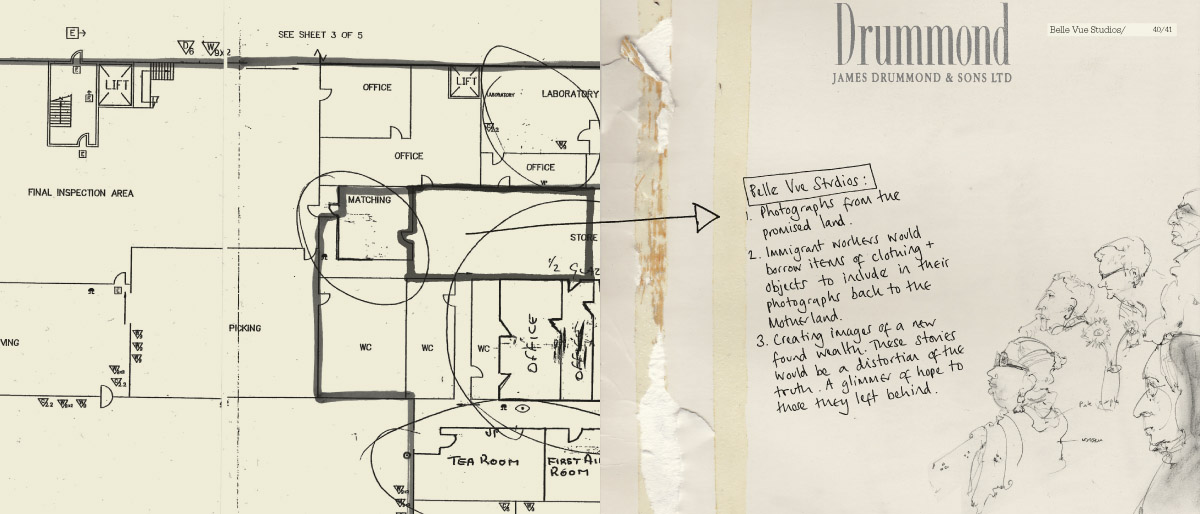 SEE SHEET 3 OF 5
E
LIFT
OFFICE
LIFT
LABORATORY
LABORATORY
OFFICE
OFFICE
UP
FINAL INSPECTION AREA
MATCHING
STORE
1/2
PICKING
WC
WC
WC
OFFICE
OFFICE
VING
UP
TEA ROOM
FIRST AI
ROOM
Drummond
JAMES DRUMMOND & SONS LTD
Belle Vue Studios/ 40/41
Belle Vue Studios:
1. Photographs from the
promised land.
2. Immigrant workers would
borrow items of clothing +
objects to include in their
photographs back to the
Motherland.
3. Creating images of a new
found wealth. These stories
would be a distortion of the
truth. A glimmer of hope to
those they left behind.